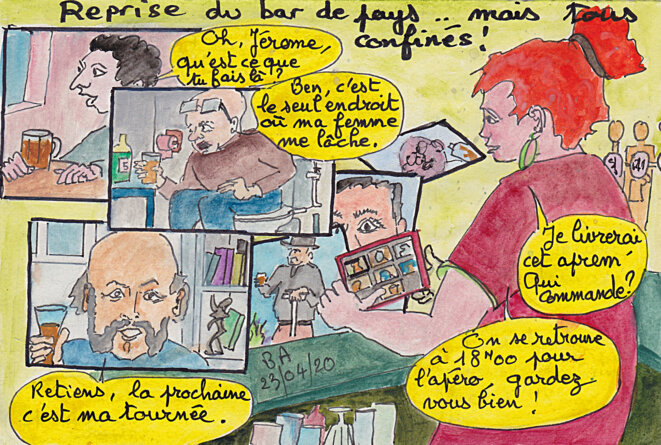 Reprise du bar de pays .. mais tous
confinés !
Oh, Jérome,
qu'est ce que
tu fais là ?
Ben, c'est
le seul endroit
où ma femme
me lâche.
Je livrerai
cet aprem'
Qui
commande?
On se retrouve
à 18H00 pour
l'apéro, gardez
vous bien !
Retiens, la prochaine
c'est ma tournée.
BA
23/04/20